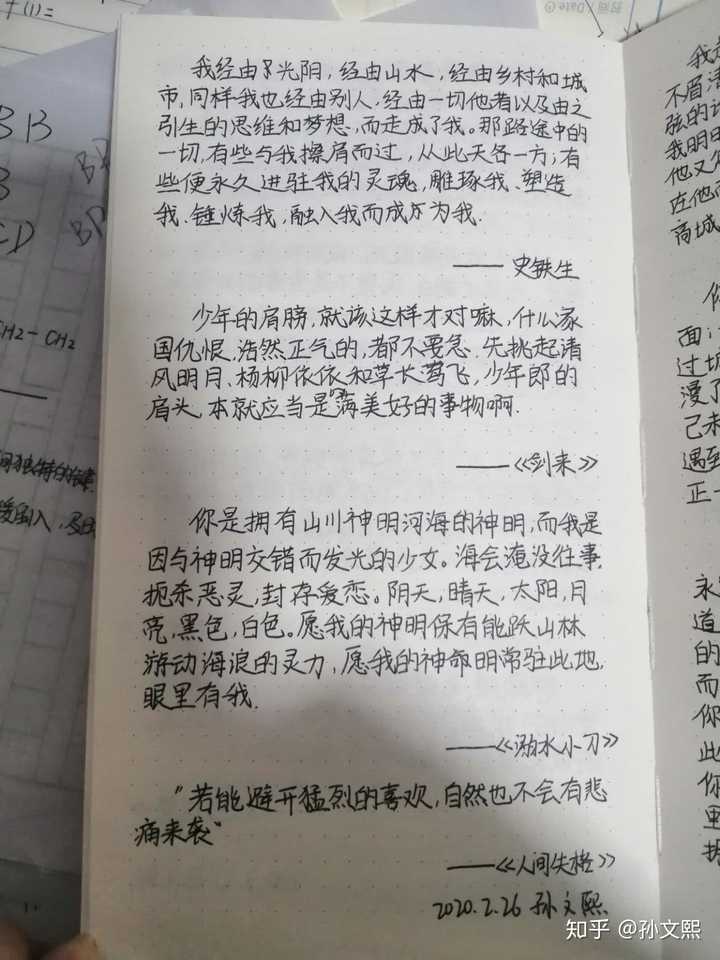 我经由光阴，经由山水，经由乡村和城
市，同样我也经由别人，经由一切他者以及由之
引生的思维和梦想，而走成了我。那路途中的
一切，有些与我擦肩而过，从此天各一方；有
些便永久进驻我的灵魂，雕琢我、塑造
我、锤炼我，融入我而成为我.
——史铁生
少年的肩膀，就该这样才对嘛，什么家
国仇恨，浩然正气的，都不要急，先挑起清
风明月、杨柳依依和草长莺飞，少年郎的
肩头，本就应当是满美好的事物啊.
——《剑来》
你是拥有山川神明河海的神明，而我是
因与神明交错而发光的少女。海会淹没往事，
扼杀恶灵，封存爱恋。阴天，晴天，太阳，月
亮，黑色，白色。愿我的神明保有能跃山林
游动海浪的灵力，愿我的神明常驻此地，
眼里有我.
——《溺水小刀》
"若能避开猛烈的喜欢，自然也不会有悲
痛来袭"
——《人间失格》
2020.2.26 孙文熙
知乎 @孙文熙
CH2-CH2
BB
CD
我
不眉
弦的
我明明
他又
在他
商城
你
面，
过
漫了
己未
遇到
正一
永
道
的
而
你
此
你
里